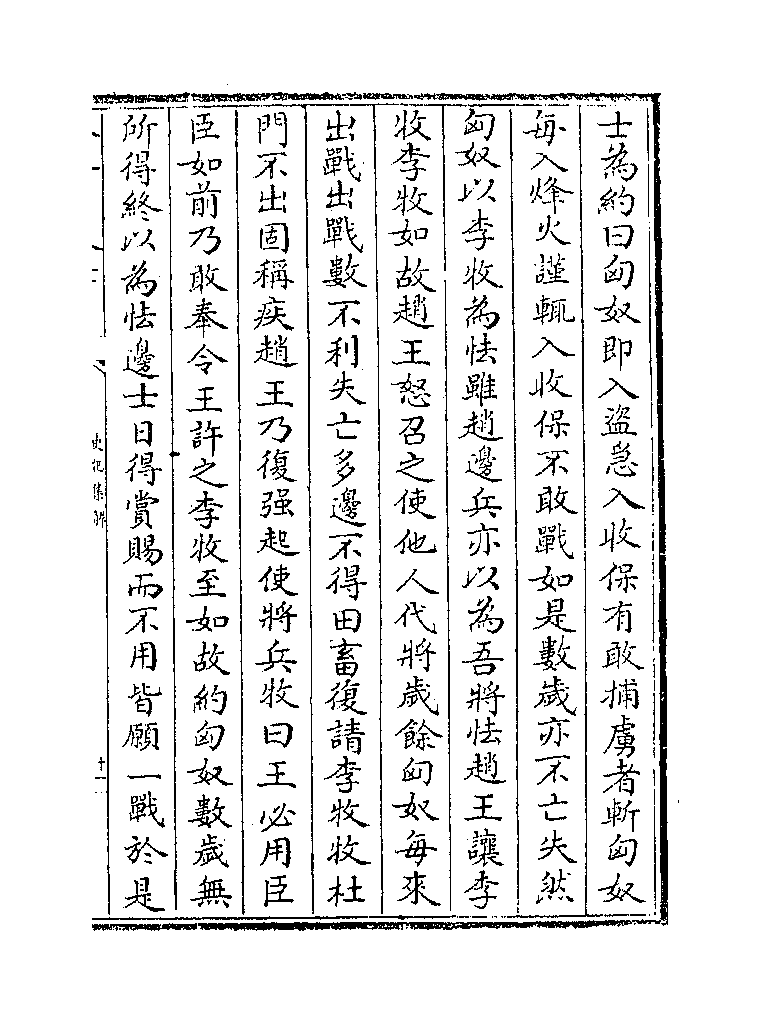 士為約曰匈奴即入盗急入收保有敢捕虜者斬匈奴
每入烽火謹輒入收保不敢戰如是數歲亦不亡失然
匈奴以李牧為怯雖趙邊兵亦以為吾將怯趙王讓李
牧李牧如故趙王怒召之使他人代將歲餘匈奴每來
出戰出戰數不利失亡多邊不得田畜復請李牧牧杜
門不出固稱疾趙王乃復强起使將兵牧曰王必用臣
臣如前乃敢奉令王許之李牧至如故約匈奴數歲無
所得終以為怯邊士日得賞賜而不用皆願一戰於是
史記集解